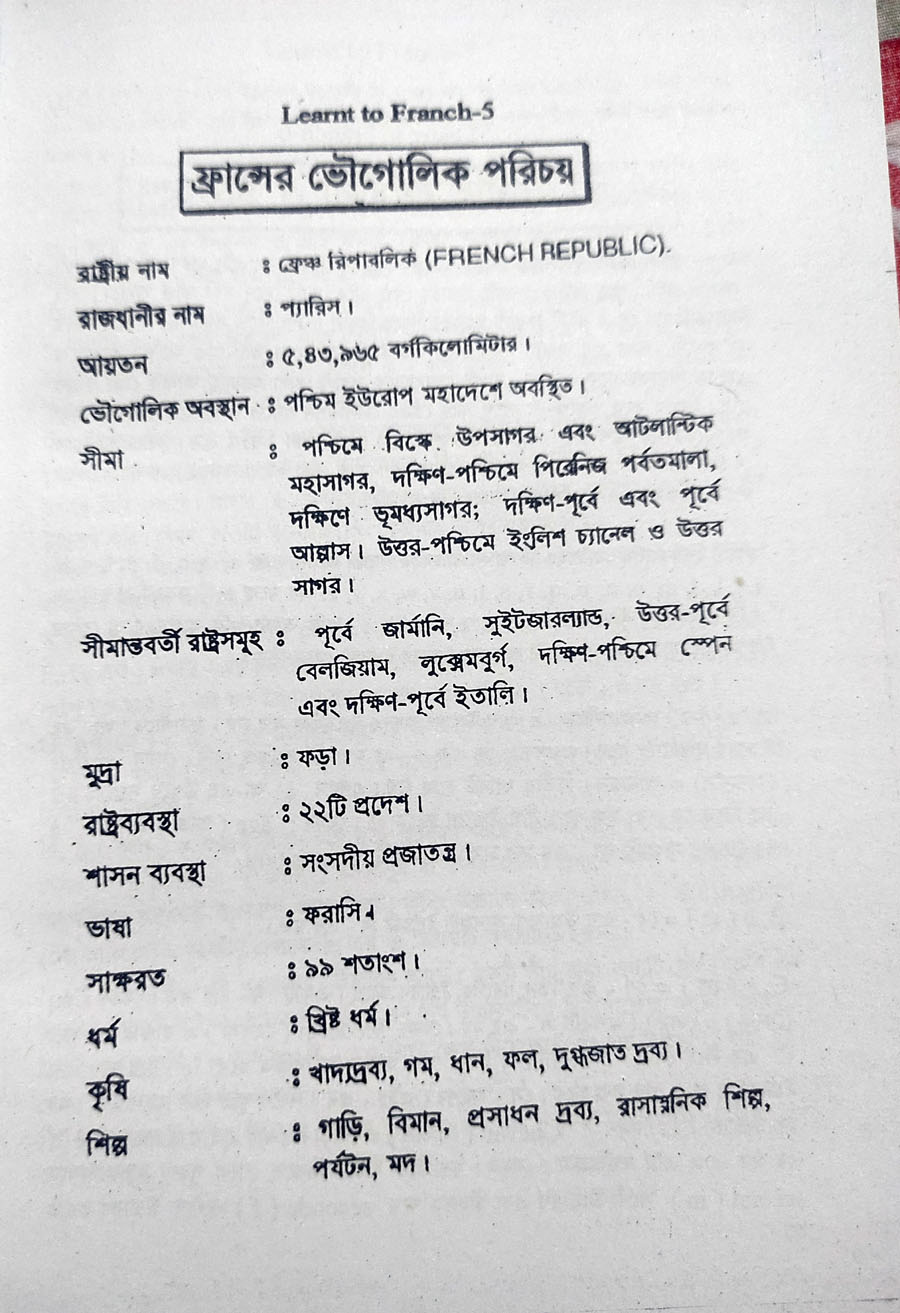 Learnt to Franch-5
ফ্রান্সের ভৌগোলিক পরিচয়
রাষ্ট্রীয় নাম : ফ্রেঞ্চ রিপাবলিক (FRENCH REPUBLIC).
রাজধানীর নাম : প্যারিস।
আয়তন : ৫,৪৩,৯৬৫ বর্গকিলোমিটার।
ভৌগোলিক অবস্থান : পশ্চিম ইউরোপ মহাদেশে অবস্থিত।
সীমা : পশ্চিমে বিস্কে উপসাগর এবং আটলান্টিক
মহাসাগর, দক্ষিণ-পশ্চিমে পিরেনিজ পর্বতমালা,
দক্ষিণে ভূমধ্যসাগর; দক্ষিণ-পূর্বে এবং পূর্বে
আল্পাস। উত্তর-পশ্চিমে ইংলিশ চ্যানেল ও উত্তর
সাগর।
সীমান্তবর্তী রাষ্ট্রসমূহ : পূর্বে জার্মানি, সুইটজারল্যান্ড, উত্তর-পূর্বে
বেলজিয়াম, লুক্সেমবুর্গ, দক্ষিণ-পশ্চিমে স্পেন
এবং দক্ষিণ-পূর্বে ইতালি।
মুদ্রা : ফড়া।
রাষ্ট্রব্যবস্থা : ২২টি প্রদেশ।
শাসন ব্যবস্থা : সংসদীয় প্রজাতন্ত্র।
ভাষা : ফরাসি।
সাক্ষরত : ৯৯ শতাংশ।
ধর্ম : খ্রিষ্ট ধর্ম।
কৃষি : খাদ্যদ্রব্য, গম, ধান, ফল, দুগ্ধজাত দ্রব্য।
শিল্প : গাড়ি, বিমান, প্রসাধন দ্রব্য, রাসায়নিক শিল্প,
পর্যটন, মদ।